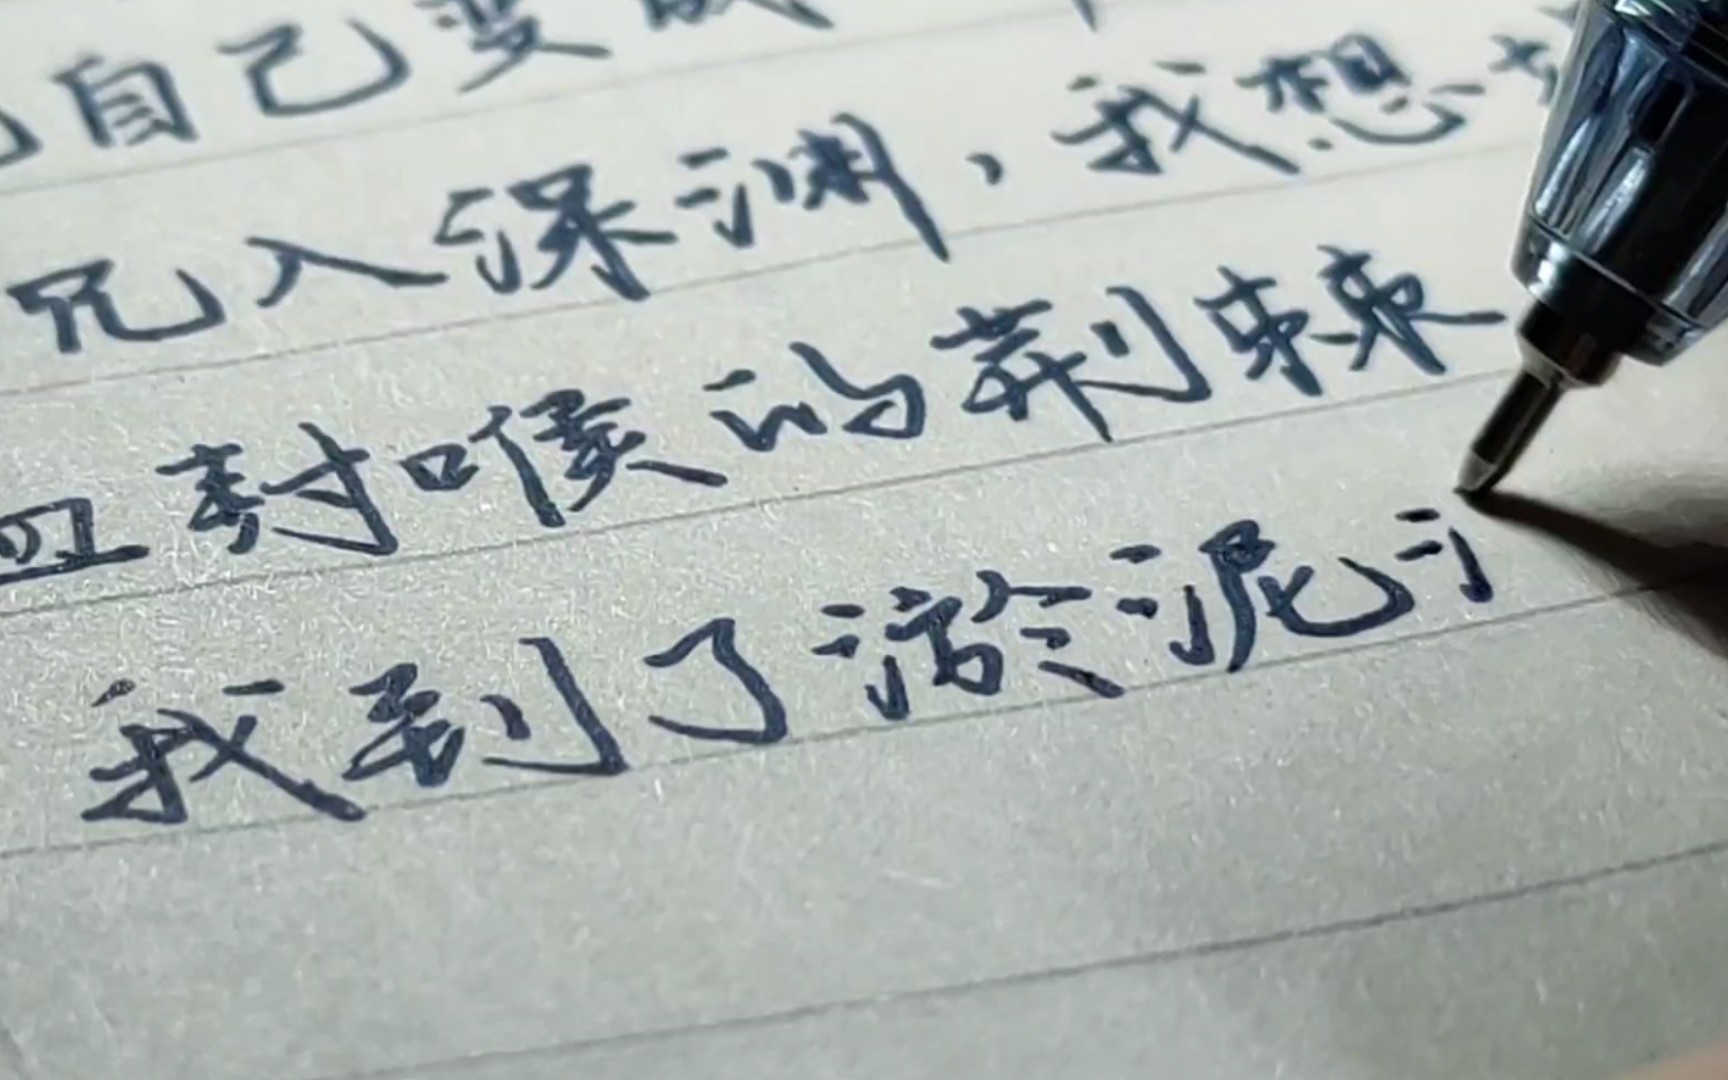 自己变成
入深渊，我想
血封喉的荆棘
我到了淤泥